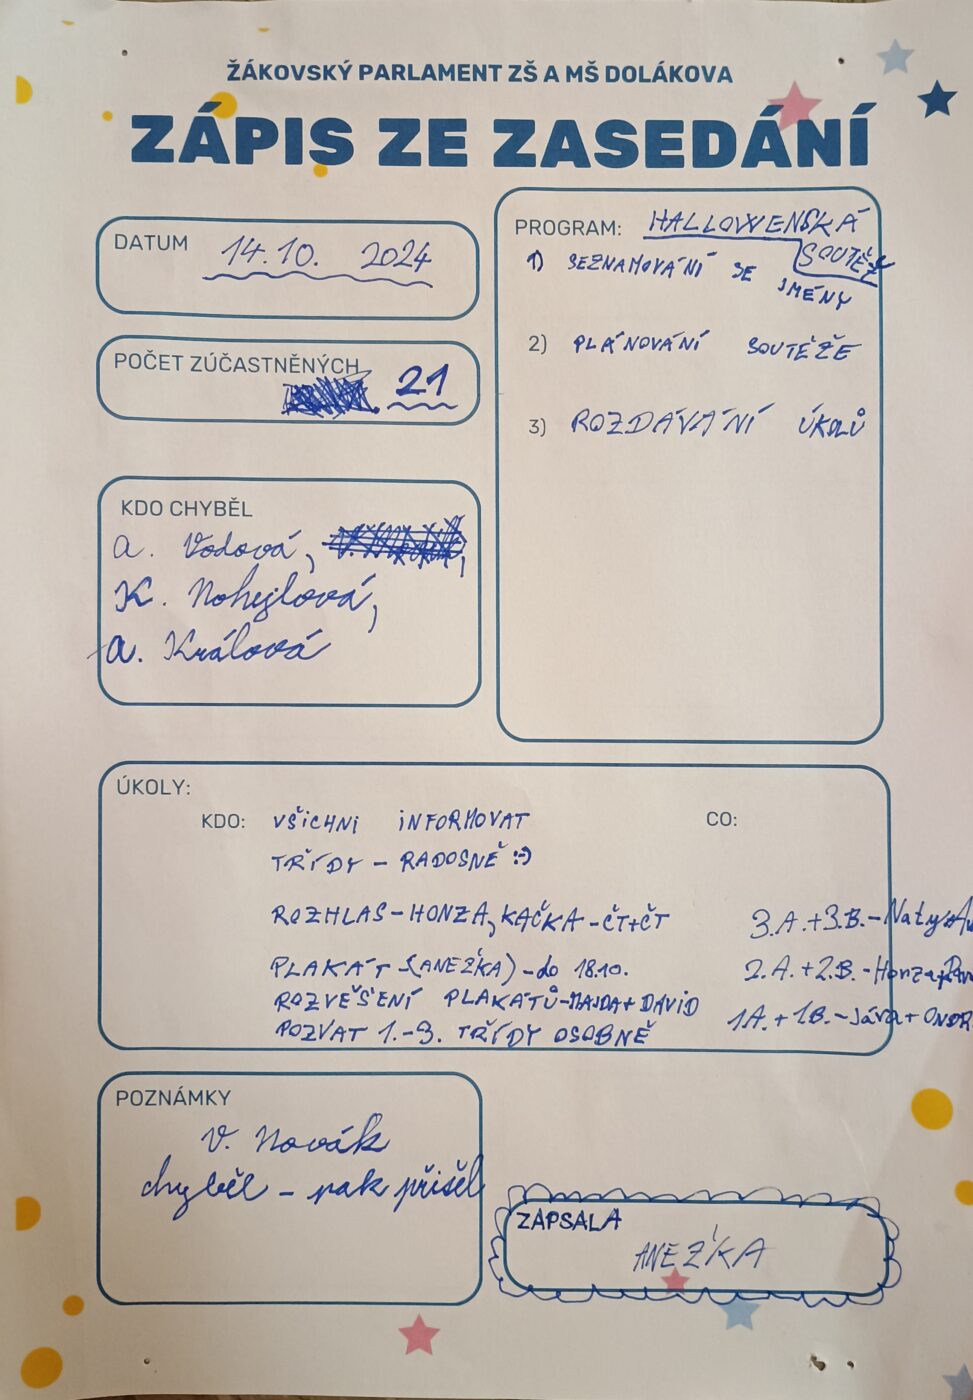 ŽÁKOVSKÝ PARLAMENT ZŠ A MŠ DOLÁKOVA
ZÁPIS ZE ZASEDÁNÍ
DATUM 14.10. 2024
POČET ZÚČASTNĚNÝCH
21
KDO CHYBĚL
A. Vodová,
K. Nohejlová,
A. Králová
PROGRAM: HALLOWENSKÁ
SOUTĚŽ
1) SEZNAMOVÁNÍ SE
JMÉNY
2) PLÁNOVÁNÍ SOUTĚŽE
3) ROZDÁVÁNÍ ÚKOLŮ
ÚKOLY:
KDO: VŠICHNI INFORMOVAT
TŘÍDY – RADOSNĚ :-)
ROZHLAS – HONZA, KAČKA – ČT+ČT
PLAKÁT – (ANEŽKA) – do 18.10.
ROZVĚŠENÍ PLAKATŮ – MAJDA + DAVID
POZVAT 1.-3. TŘÍDY OSOBNĚ
CO:
3.A.+3.B. – Naty
2.A.+2.B. – Honza+
1A.+1B. – Jáva + ONDR
POZNÁMKY
V. Novák
chyběl – pak přišel
ZAPSALA
ANEŽKA